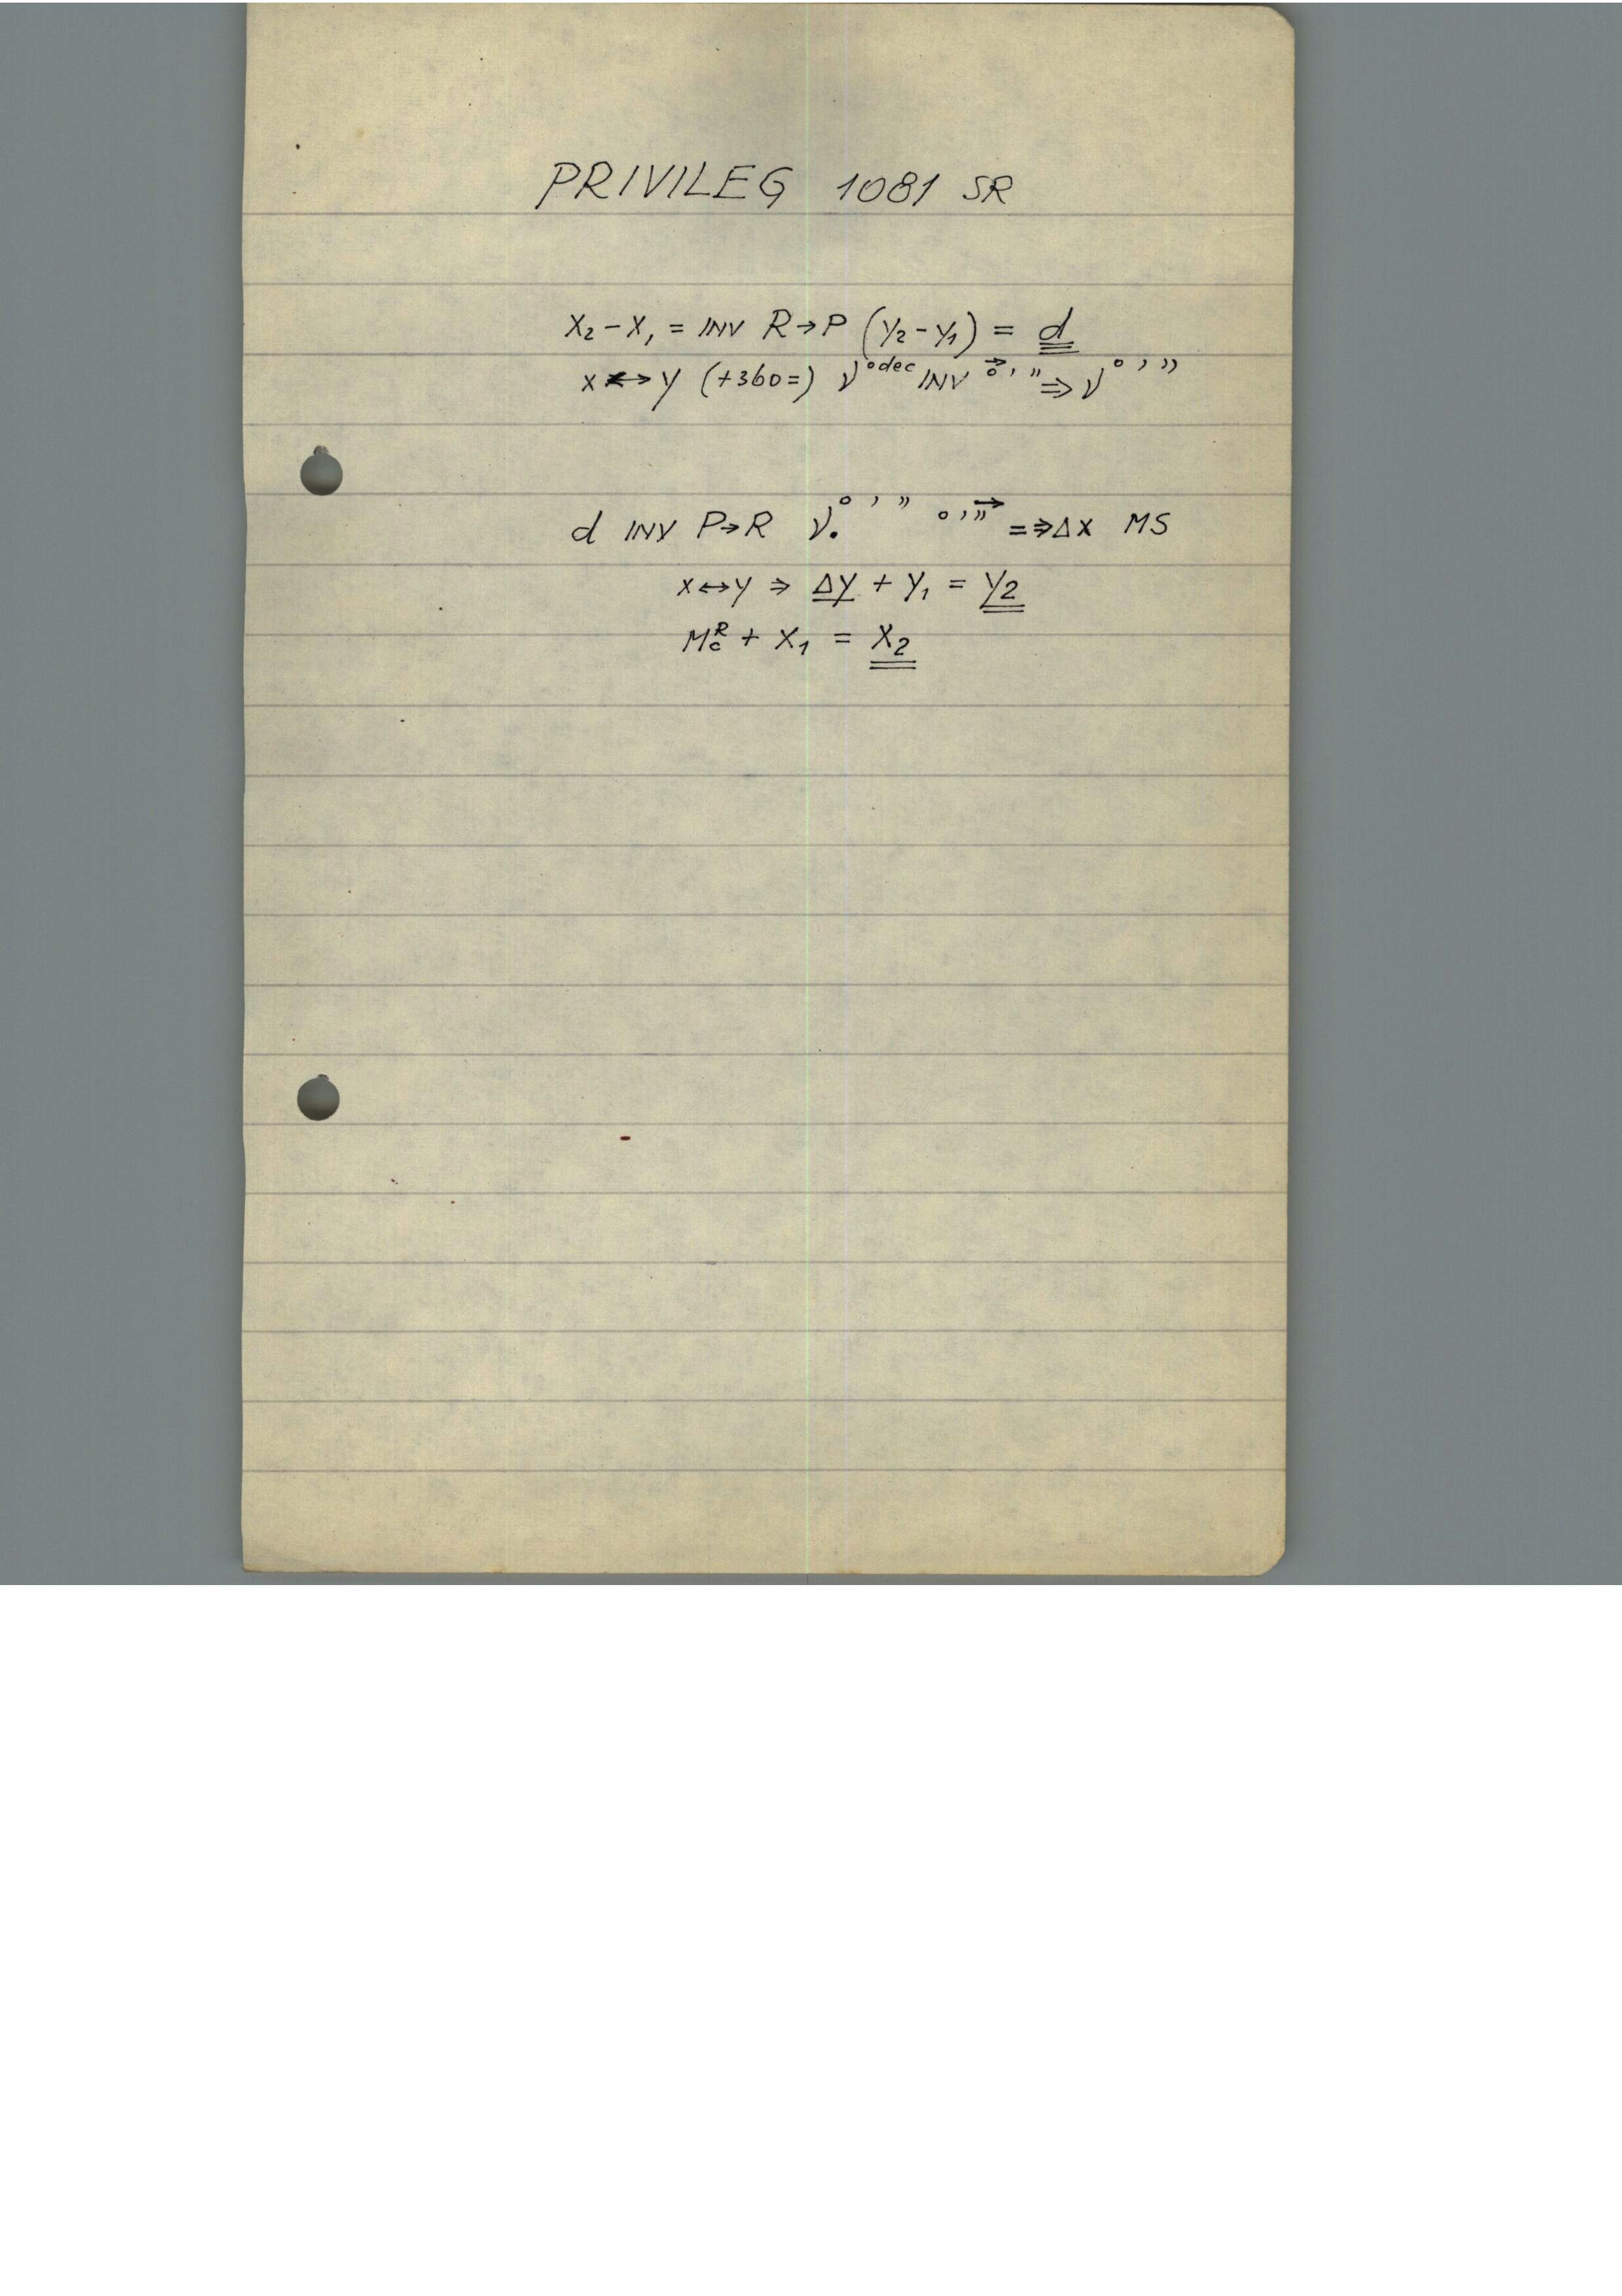 PRIVILEG 1081 SR
X₂-X₁ = INV R→P (Y₂-Y₁) = d
X↔Y (+360=) ν°dec INV °→ ' " ⇒ ν° ' "
d INV P→R ν.° ' " ° ' "→ =⇒ΔX MS
X↔Y ⇒ ΔY + Y₁ = Y₂
M R C + X₁ = X₂